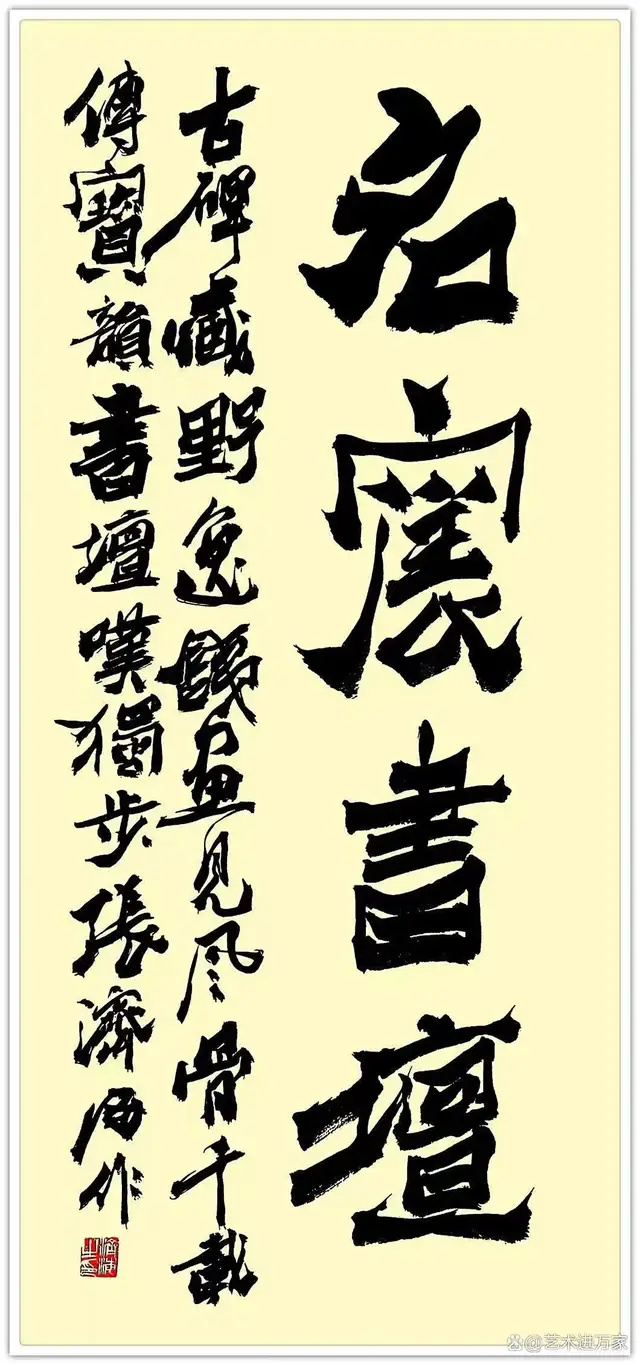 名震書壇
古碑藏野逸鐵畫見风骨千載
傳寶韻書壇嘆獨步張濟海作
@艺术进万家